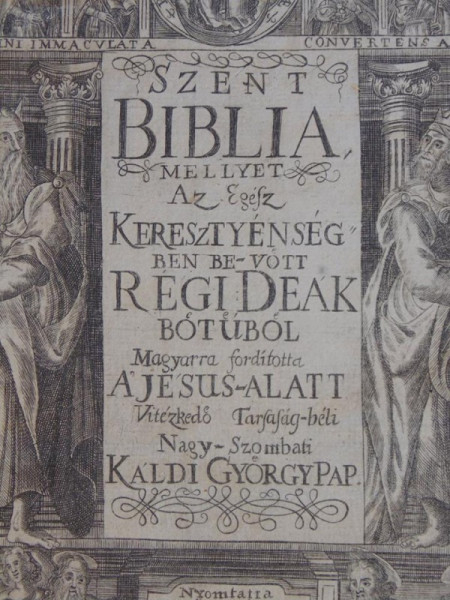 NI IMMACVLATA CONVERTENS A
SZENT
BIBLIA,
MELLYET
Az Egész
KERESZTYÉNSÉG-
BEN BE-VÖTT
RÉGI DEÁK
BÖTŰBŐL
Magyarra fordította
A'JESUS-ALATT
Vitézkedő Tarsaság-béli
Nagy-Szombati
KALDI GYÖRGY PAP.
Nyomtatta